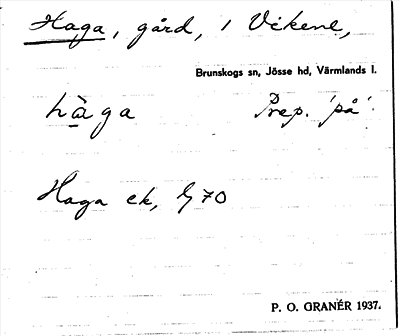 Haga, gård, i Vikene,
Brunskogs sn, Jösse hd, Värmlands l.
hàga Prep. 'på'.
Haga ek, 70
P. O. GRANÉR 1937.